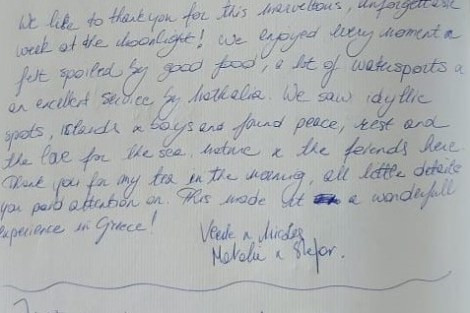 We like to thank you for this marvellous, unforgettable
week at the Moonlight! We enjoyed every moment
felt spoiled by good food, a lot of watersports
an excellent service by Nathalia. We saw idyllic
spots, islands & bays and found peace, rest and
the love for the sea, nature & the friends here
Thank you for my tea in the morning, all little details
you paid attention on. This made it a wonderfull
experience in Greece!
&
Natalie &